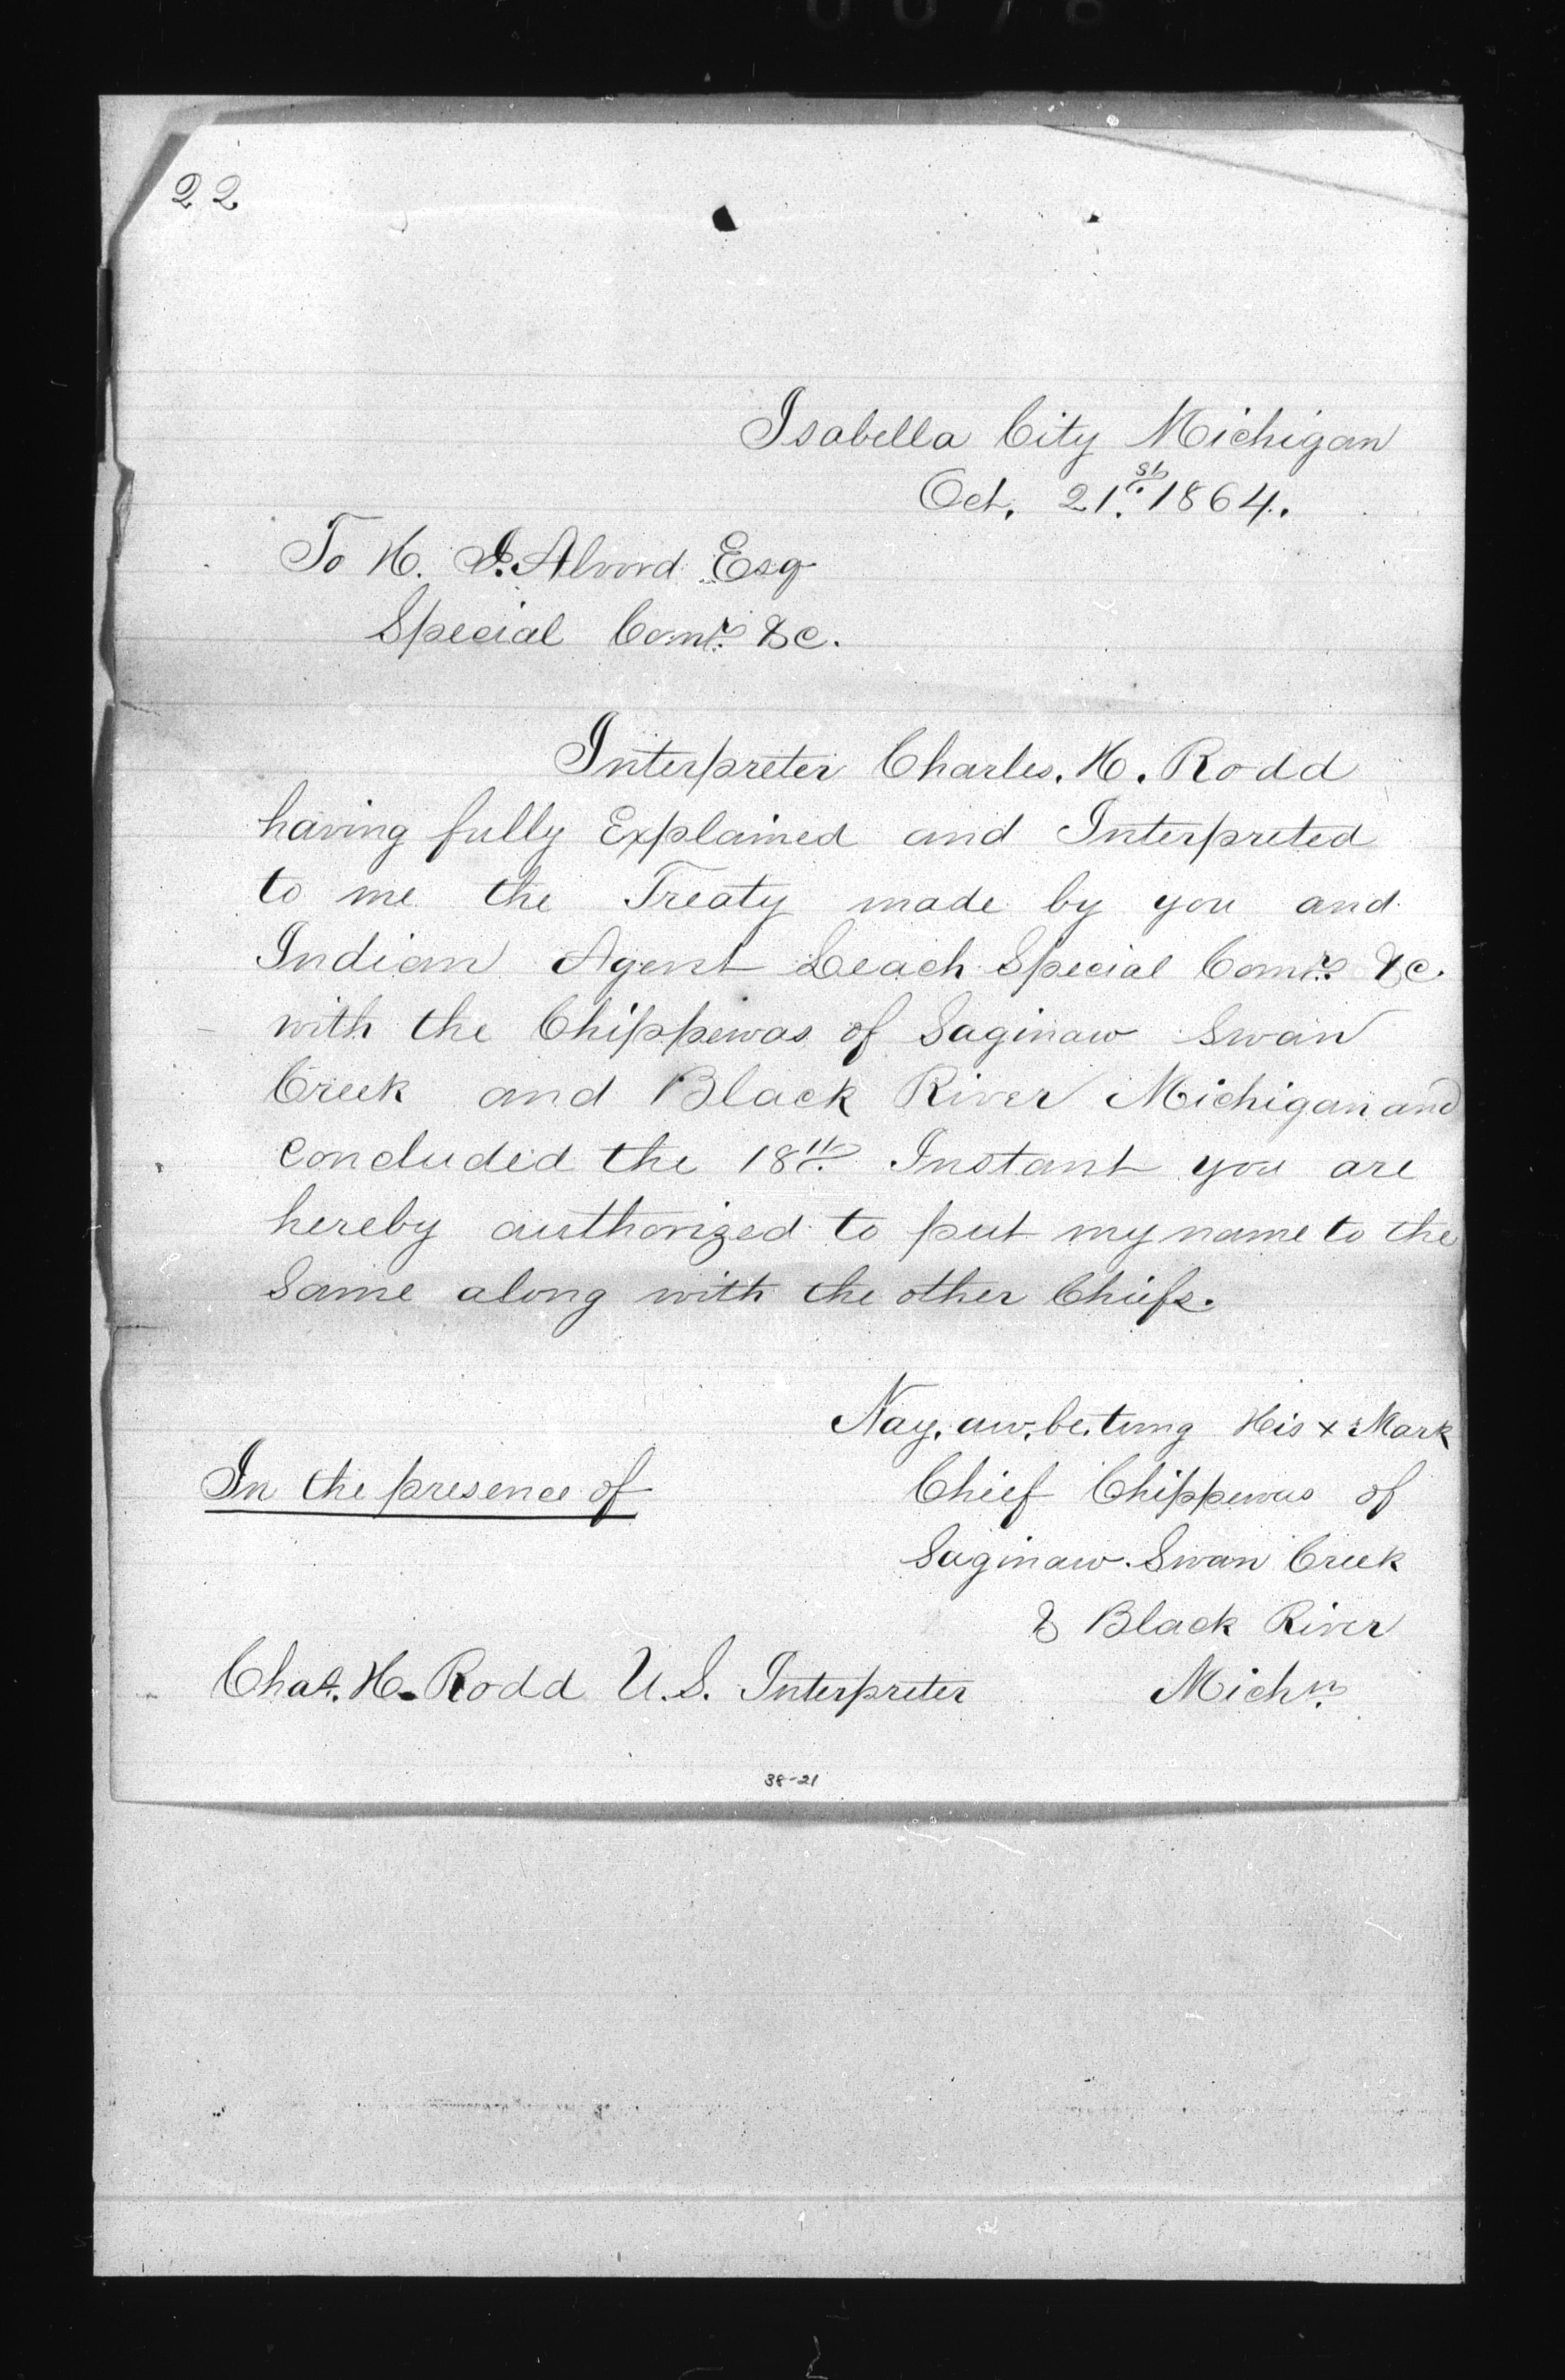 22
Isabella City Michigan
Oct. 21st. 1864.
To H. J. Alvord Esq
Special Comr. &c.
Interpreter Charles. H. Rodd
having fully Explained and Interpreted
to me the Treaty made by you and
Indian Agent Leach Special Comrs. &c.
with the Chippewas of Saginaw Swan
Creek and Black River Michigan and
concluded the 18th. Instant you are
hereby authorized to put my name to the
Same along with the other Chiefs.
Nay. aw. be. tung His x Mark
In the presence of
Chief Chippewas of
Saginaw. Swan Creek
& Black River
Chas. H. Rodd U.S. Interpreter
Michn.
38-21